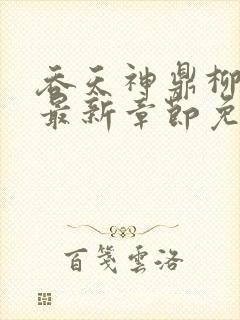 吞天神鼎柳
最新章節免
百箋雲洛